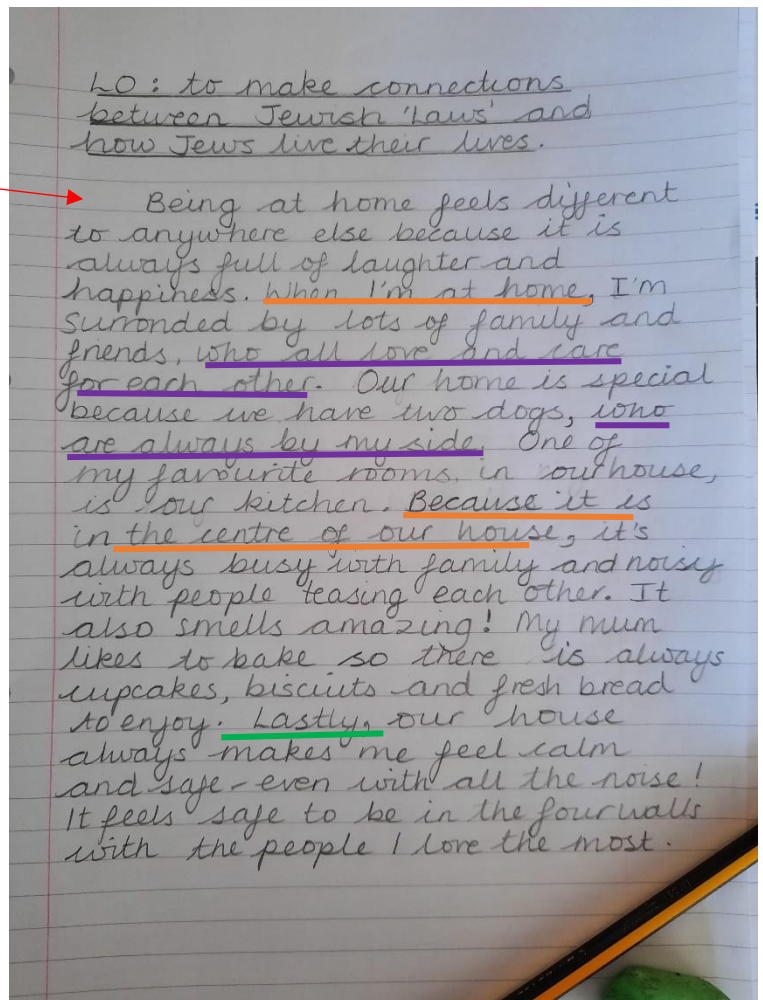 LO: to make connections
between Jewish 'Laws' and
how Jews live their lives.
Being at home feels different
to anywhere else because it is
always full of laughter and
happiness. When I'm at home, I'm
surronded by lots of family and
friends, who all love and care
for each other. Our home is special
because we have two dogs, who
are always by my side. One of
my favourite rooms, in our house,
is our kitchen. Because it is
in the centre of our house, it's
always busy with family and noisy
with people teasing each other. It
also smells amazing! My mum
likes to bake so there is always
cupcakes, biscuits and fresh bread
to enjoy. Lastly, our house
always makes me feel calm
and safe - even with all the noise!
It feels safe to be in the four walls
with the people I love the most.